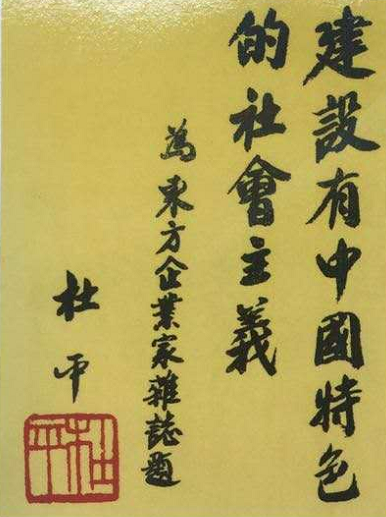 建設有中國特色
的社會主義
為東方企業家雜誌題
杜平
杜平